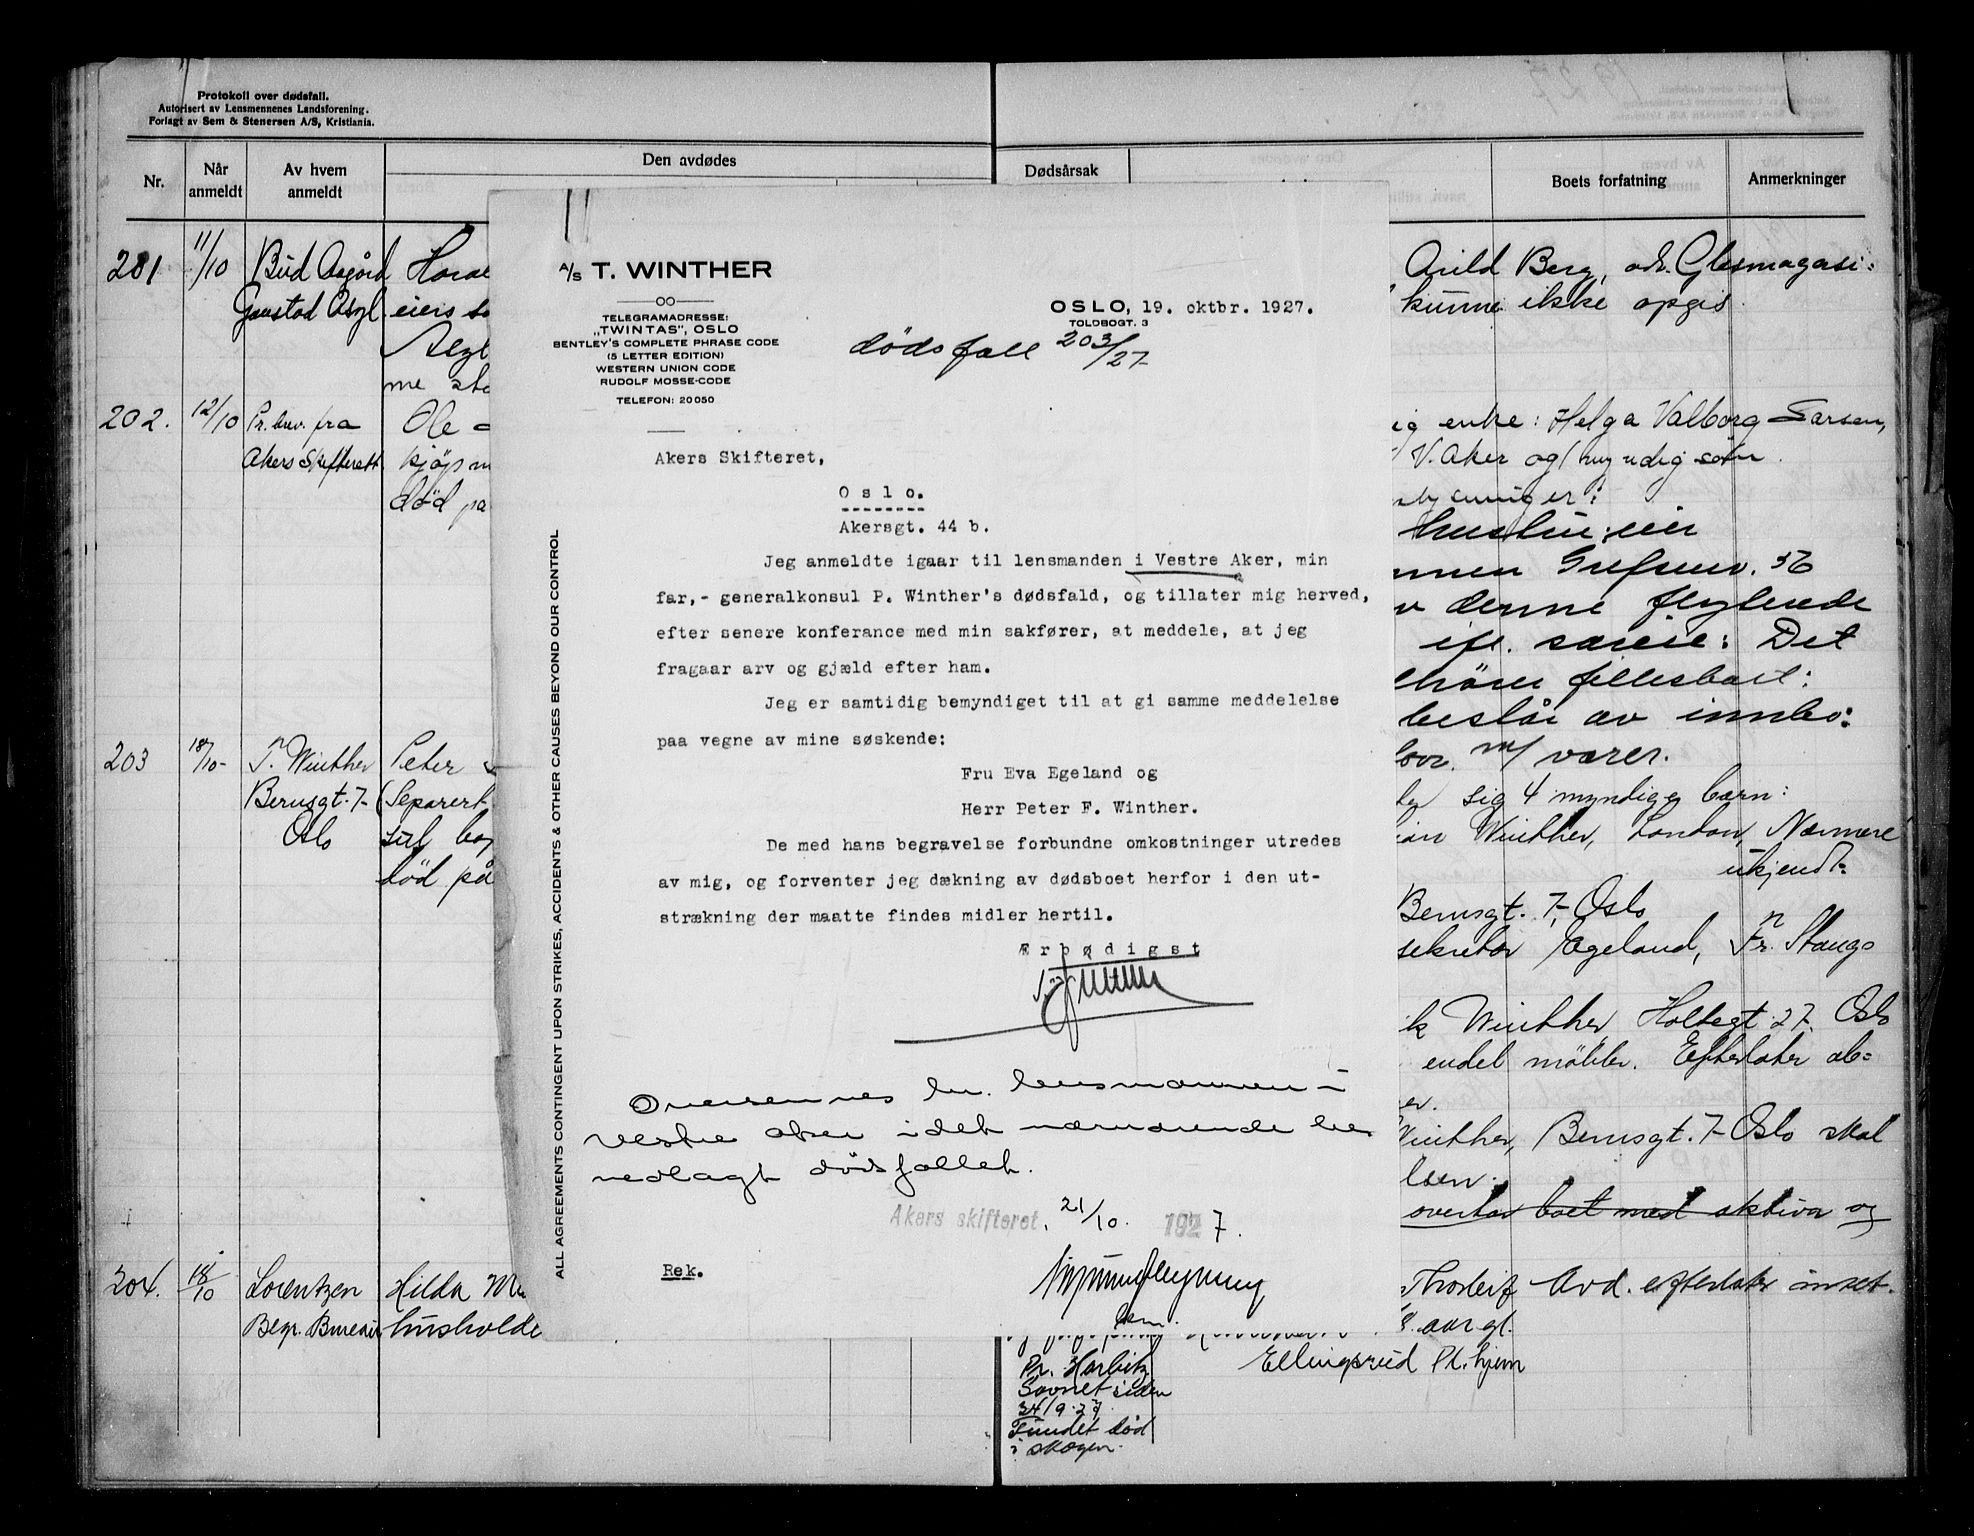 Protokoll over dødsfall.
Autorisert av Lensmennenes Landsforening.
Forlagt av Sem & Stenersen A/S, Kristiania.
Nr.
Når anmeldt
Av hvem anmeldt
Den avdødes
Dødsårsak
Boets forfatning
Anmerkninger
201
11/10
Bud Asgård
Gaustad Asyl
eiers
me
202.
12/10
Pr. brev. fra
Akers Skifterett
Ole
kjøpm
død på
203
18/10-
T. Winther
Berusgt. 7-
Oslo
Peter
(Separert
død på
204.
18/10
Lorentzen
Begr. Bureau
Hilda
husholde
A/S T. WINTHER
TELEGRAMADRESSE:
„TWINTAS", OSLO
BENTLEY'S COMPLETE PHRASE CODE
(5 LETTER EDITION)
WESTERN UNION CODE
RUDOLF MOSSE-CODE
TELEFON: 20050
OSLO, 19. oktbr. 1927.
TOLDBOGT. 3
dødsfall 203/27
Akers Skifteret,
Oslo.
Akersgt. 44 b.
Jeg anmeldte igaar til lensmanden i Vestre Aker, min
far,- generalkonsul P. Winther's dødsfald, og tillater mig herved,
efter senere konferance med min sakfører, at meddele, at jeg
fragaar arv og gjæld efter ham.
Jeg er samtidig bemyndiget til at gi samme meddelelse
paa vegne av mine søskende:
Fru Eva Egeland og
Herr Peter F. Winther.
De med hans begravelse forbundne omkostninger utredes
av mig, og forventer jeg dækning av dødsboet herfor i den ut-
strækning der maatte findes midler hertil.
Ærbødigst
Oversennes hr. lensmannen i
Vestre Aker idet nærværende bes
vedlagt dødsfallet.
Akers skifteret, 21/10. 1927.
Rek.
ALL AGREEMENTS CONTINGENT UPON STRIKES, ACCIDENTS & OTHER CAUSES BEYOND OUR CONTROL
Arild Berg, adr. Glasmagasi-
kunne ikke opgis
ig enke: Helga Valborg Larsen,
V. Aker og 1 myndig sønn.
hustru eier
Grefsenv. 56
denne flytende
efl. særeie: Det
fellesboet:
består av innbo:
m/ varer.
sig 4 myndige barn:
Winther, London, Nærmere
ukjendt-
Berusgt. 7, Oslo
sekretær Egeland, Fr. Stangs
Winther, Holtegt. 27. Oslo
endel møbler. Efterlater
er.
Winther, Berusgt. 7- Oslo skal
overtar boet med aktiva og
Thorleif Avd. efterlater
aar gl.
Ellingsrud Pl. hjem
Pr. Harbitz
Savnet siden
24/9.27.
Fundet død
i skogen.